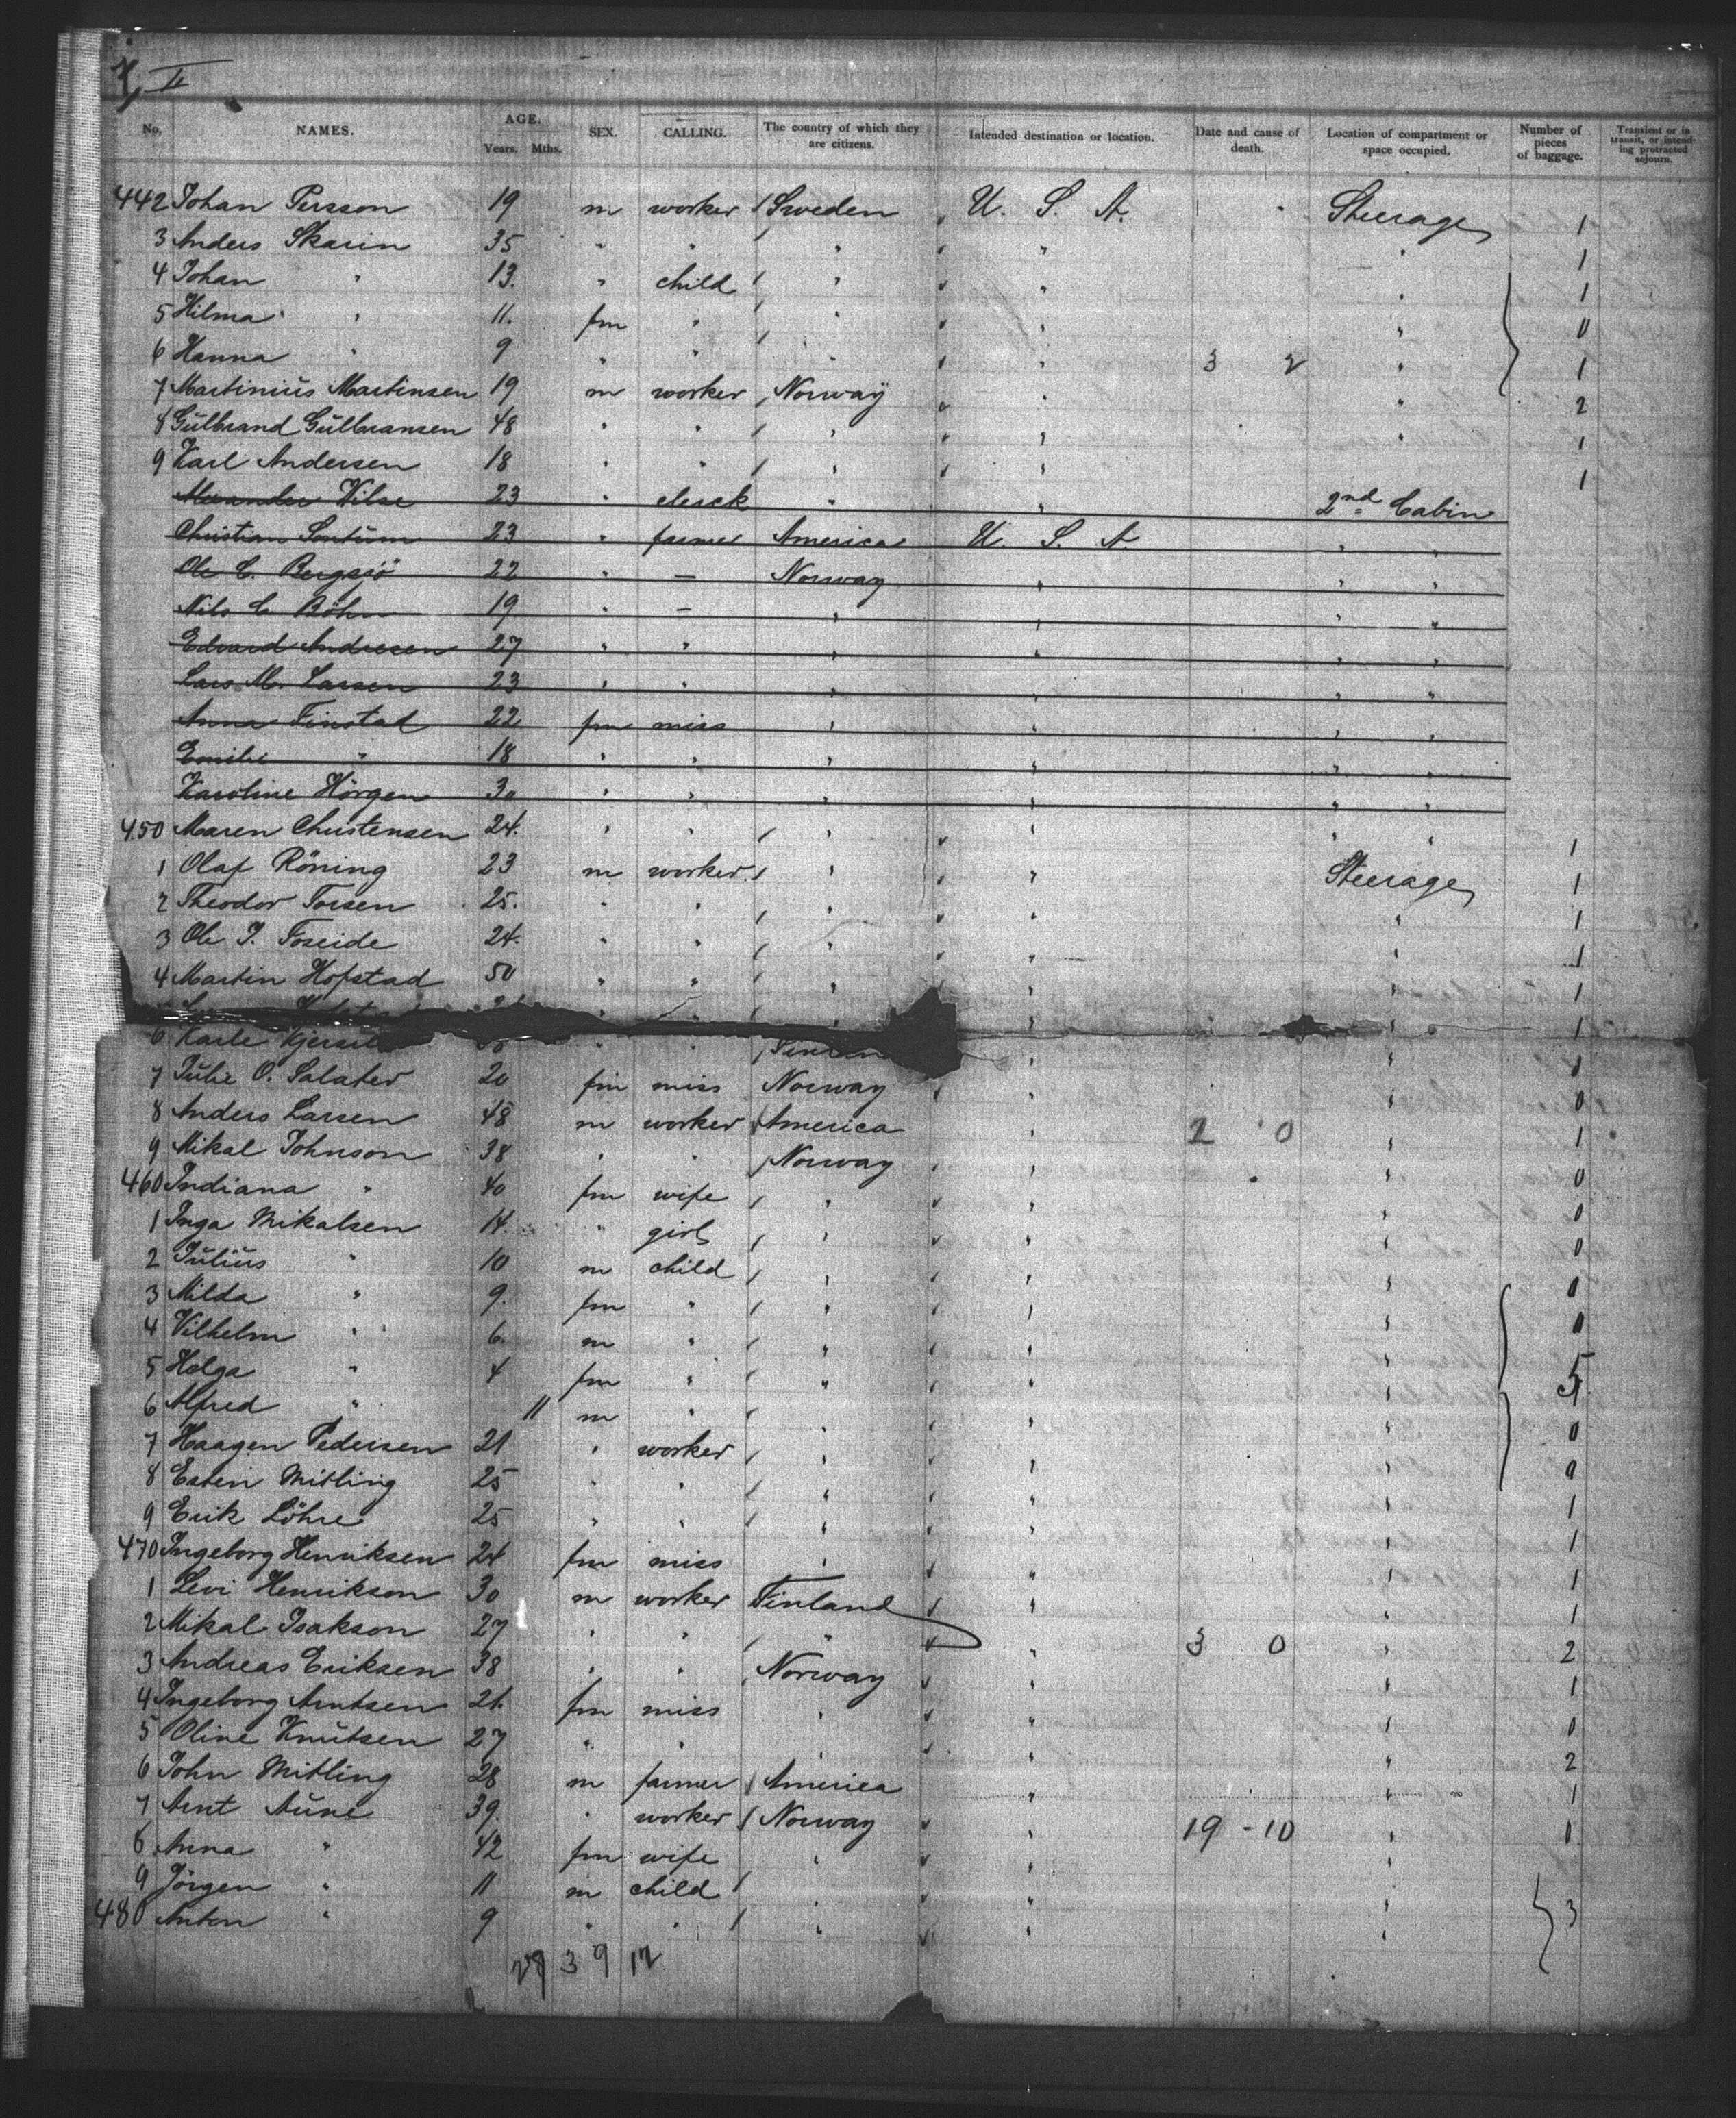 7, II
No. NAMES. AGE. Years. Mths. SEX. CALLING. The country of which they are citizens. Intended destination or location. Date and cause of death. Location of compartment or space occupied. Number of pieces of baggage. Transient or in transit, or intending protracted sojourn.
442 Johan Persson 19 m worker / Sweden U. S. A. Steerage 1
3 Anders Skarin 35 " " / " " " 1
4 Johan " 13. " child / " " " 1
5 Hilma " 11. fm " / " " " 0
6 Hanna " 9 " " " " 3 2 " 1
7 Martinius Martinsen 19 m worker / Norway " " 2
8 Gulbrand Gulbransen 48 " " / " " " 1
9 Karl Andersen 18 " " / " " 1
Alexander Vilse 23 " clerck " " 2nd Cabin
Christian Sontum 23 " farmer America U. S. A. " "
Ole C. Bergsjö 22 " — Norway " " "
Nils C. Böhn 19 " — " " " "
Edvard Andresen 27 " " " " " "
Lars M. Larsen 23 " " " " " "
Anna Finstad 22 fm miss " " " "
Emilie " 18 " " " " " "
Karoline Hörgen 30 " " " " " "
450 Maren Christensen 24. " " / " " " " 1
1 Olaf Röning 23 m worker / " " Steerage 1
2 Theodor Torsen 25. " " / " " " 1
3 Ole J. Foseide 24. " " / " " " 1
4 Martin Hofstad 50 " " / " " " 1
" " / " " 1
6 Karle " " / " " 0
7 Julie O. Salater 20 fm miss Norway " " 0
8 Anders Larsen 48 m worker / America " 2 0 " 1
9 Mikal Johnson 38 " " / Norway " " 0
460 Indiana " 40 fm wife / " " " 0
1 Inga Mikalsen 14. " girl / " " " 0
2 Julius " 10 m child / " " " 0
3 Milda " 9. fm " / " " " 0
4 Vilhelm " 6. m " / " " " 5
5 Helga " 4 fm " / " " "
6 Alfred " 11 m " / " " " 0
7 Haagen Pedersen 21 " worker / " " " 0
8 Esten Mitling 25 " " / " " " 1
9 Erik Löhre 25 " " / " " " 1
470 Ingeborg Henriksen 24 fm miss " " " 1
1 Levi Henrikson 30 m worker Finland " " 1
2 Mikal Isakson 27 " " / " " 3 0 " 2
3 Andreas Eriksen 38 " " / Norway " " 1
4 Ingeborg Arntsen 21. fm miss " " " 0
5 Oline Knutsen 27 " " " " " 2
6 John Mitling 28 m farmer / America " " 1
7 Arnt Aune 39. " worker / Norway " 19 - 10 " 0
8 Anna " 42 fm wife " " "
9 Jörgen " 11 m child / " " " 3
480 Anton " 9 " " / " " "
29 3 9 12